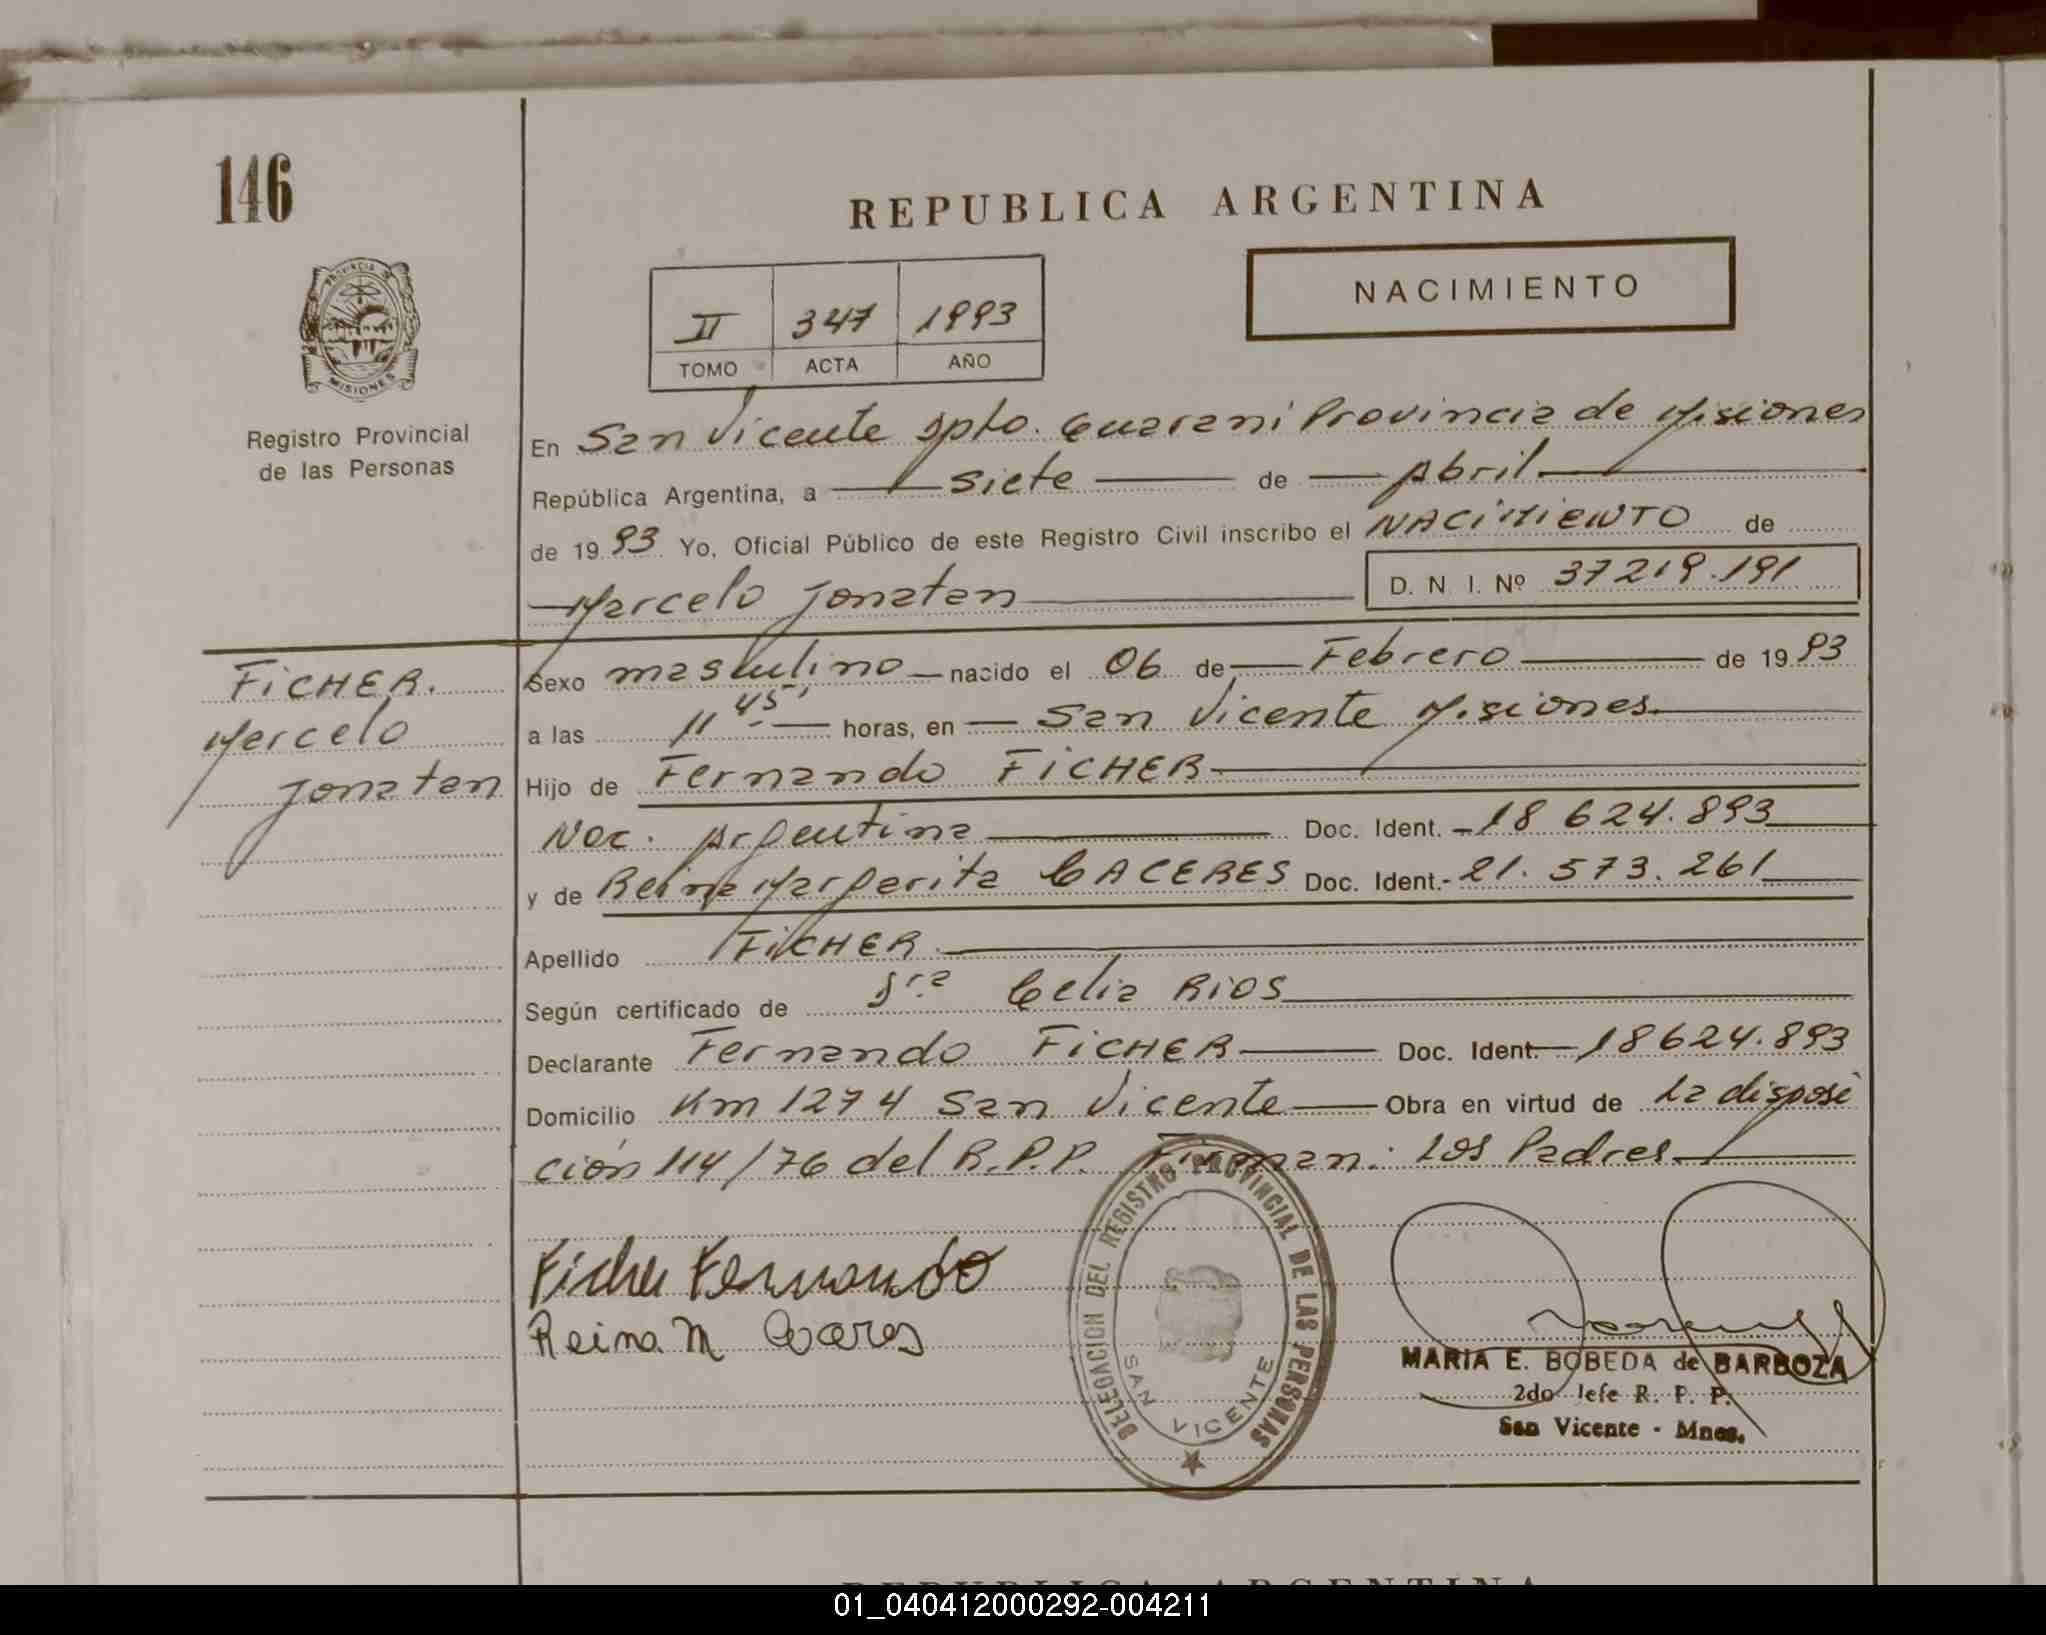 146
REPUBLICA ARGENTINA
NACIMIENTO
II 347 1993
TOMO ACTA AÑO
PROVINCIA DE MISIONES
Registro Provincial
de las Personas
En San Vicente Dpto. Guarani Provincia de Misiones
República Argentina, a siete de Abril
de 1993 Yo, Oficial Público de este Registro Civil inscribo el NACIMIENTO de
Marcelo Jonatan D. N. I. Nº 37219.191
FICHER.
Marcelo
Jonatan
Sexo masculino nacido el 06 de Febrero de 1993
a las 11 45' horas, en San Vicente Misiones
Hijo de Fernando FICHER
Nac. Argentina Doc. Ident. 18 624.893
y de Reina Margarita CACERES Doc. Ident. 21.573.261
Apellido FICHER
Según certificado de Sra Celia RIOS
Declarante Fernando FICHER Doc. Ident. 18624.893
Domicilio Km 1274 San Vicente Obra en virtud de La disposi
ción 114/76 del R.P.P. Firman: Los Padres
Ficher Fernando
Reina M
DELEGACION DEL REGISTRO PROVINCIAL DE LAS PERSONAS
SAN VICENTE
MARIA E. BOBEDA de BARBOZA
2do Jefe R. P. P.
San Vicente - Mnes.
REPUBLICA ARGENTINA
01_040412000292-004211